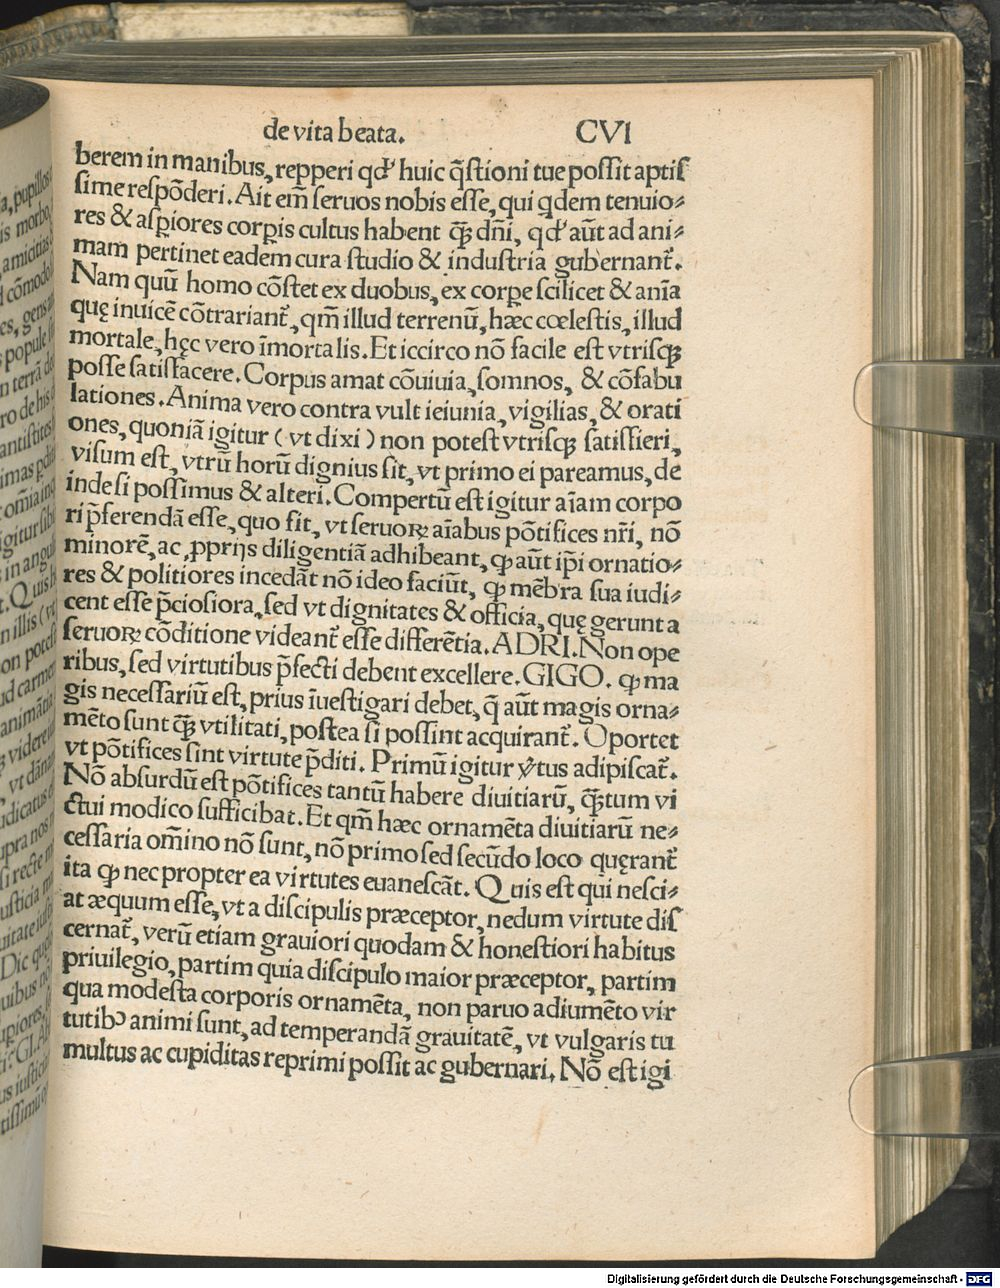 de vita beata. CVI
berem in manibus, repperi qď huic q̃stioni tue possit aptis
sime respõderi. Ait em̃ seruos nobis esse, qui qdem tenuio⸗
res & aspiores corpis cultus habent q̃ꝫ dñi, qď aũt ad ani⸗
mam pertinet eadem cura studio & industria gubernant̃.
Nam quũ homo cõstet ex duobus, ex corpe scilicet & anĩa
quę inuicẽ cõtrariant̃, qm̃ illud terrenũ, hæc cœlestis, illud
mortale, hęc vero ĩmortalis. Et iccirco nõ facile est vtrisqꝫ
posse satisfacere. Corpus amat cõuiuia, somnos, & cõfabu
lationes. Anima vero contra vult ieiunia, vigilias, & orati
ones, quoniã igitur (vt dixi) non potest vtrisqꝫ satisfieri,
visum est, vtrũ horũ dignius sit, vt primo ei pareamus, de
inde si possimus & alteri. Compertũ est igitur aĩam corpo
ri p̃ferendã esse, quo fit, vt seruoꝝ aĩabus põtifices nr̃i, nõ
minorẽ, ac ꝓprijs diligentiã adhibeant, ꝙ aũt ip̃i ornatio⸗
res & politiores incedãt nõ ideo faciũt, ꝙ mẽbra sua iudi⸗
cent esse p̃ciosiora, sed vt dignitates & officia, quę gerunt a
seruoꝝ cõditione videant̃ esse differẽtia. ADRI. Non ope
ribus, sed virtutibus p̃fecti debent excellere. GIGO. ꝙ ma
gis necessariũ est, prius ĩuestigari debet, q̃ aũt magis orna⸗
mẽto sunt q̃ꝫ vtilitati, postea si possint acquirant̃. Oportet
vt põtifices sint virtute p̃diti. Primũ igitur v̾tus adipiscat̃.
Nõ absurdũ est põtifices tantũ habere diuitiarũ, q̃ꝫtum vi
ctui modico sufficibat. Et qm̃ hæc ornamẽta diuitiarũ ne⸗
cessaria om̃ino nõ sunt, nõ primo sed secũdo loco quęrant̃
ita ꝙ nec propter ea virtutes euanescãt. Quis est qui nesci⸗
at æquum esse, vt a discipulis præceptor, nedum virtute dis
cernat̃, verũ etiam grauiori quodam & honestiori habitus
priuilegio, partim quia discipulo maior præceptor, partim
qua modesta corporis ornamẽta, non paruo adiumẽto vir
tutibꝰ animi sunt, ad temperandã grauitatẽ, vt vulgaris tu
multus ac cupiditas reprimi possit ac gubernari. Nõ est igi
Digitalisierung gefördert durch die Deutsche Forschungsgemeinschaft - DFG